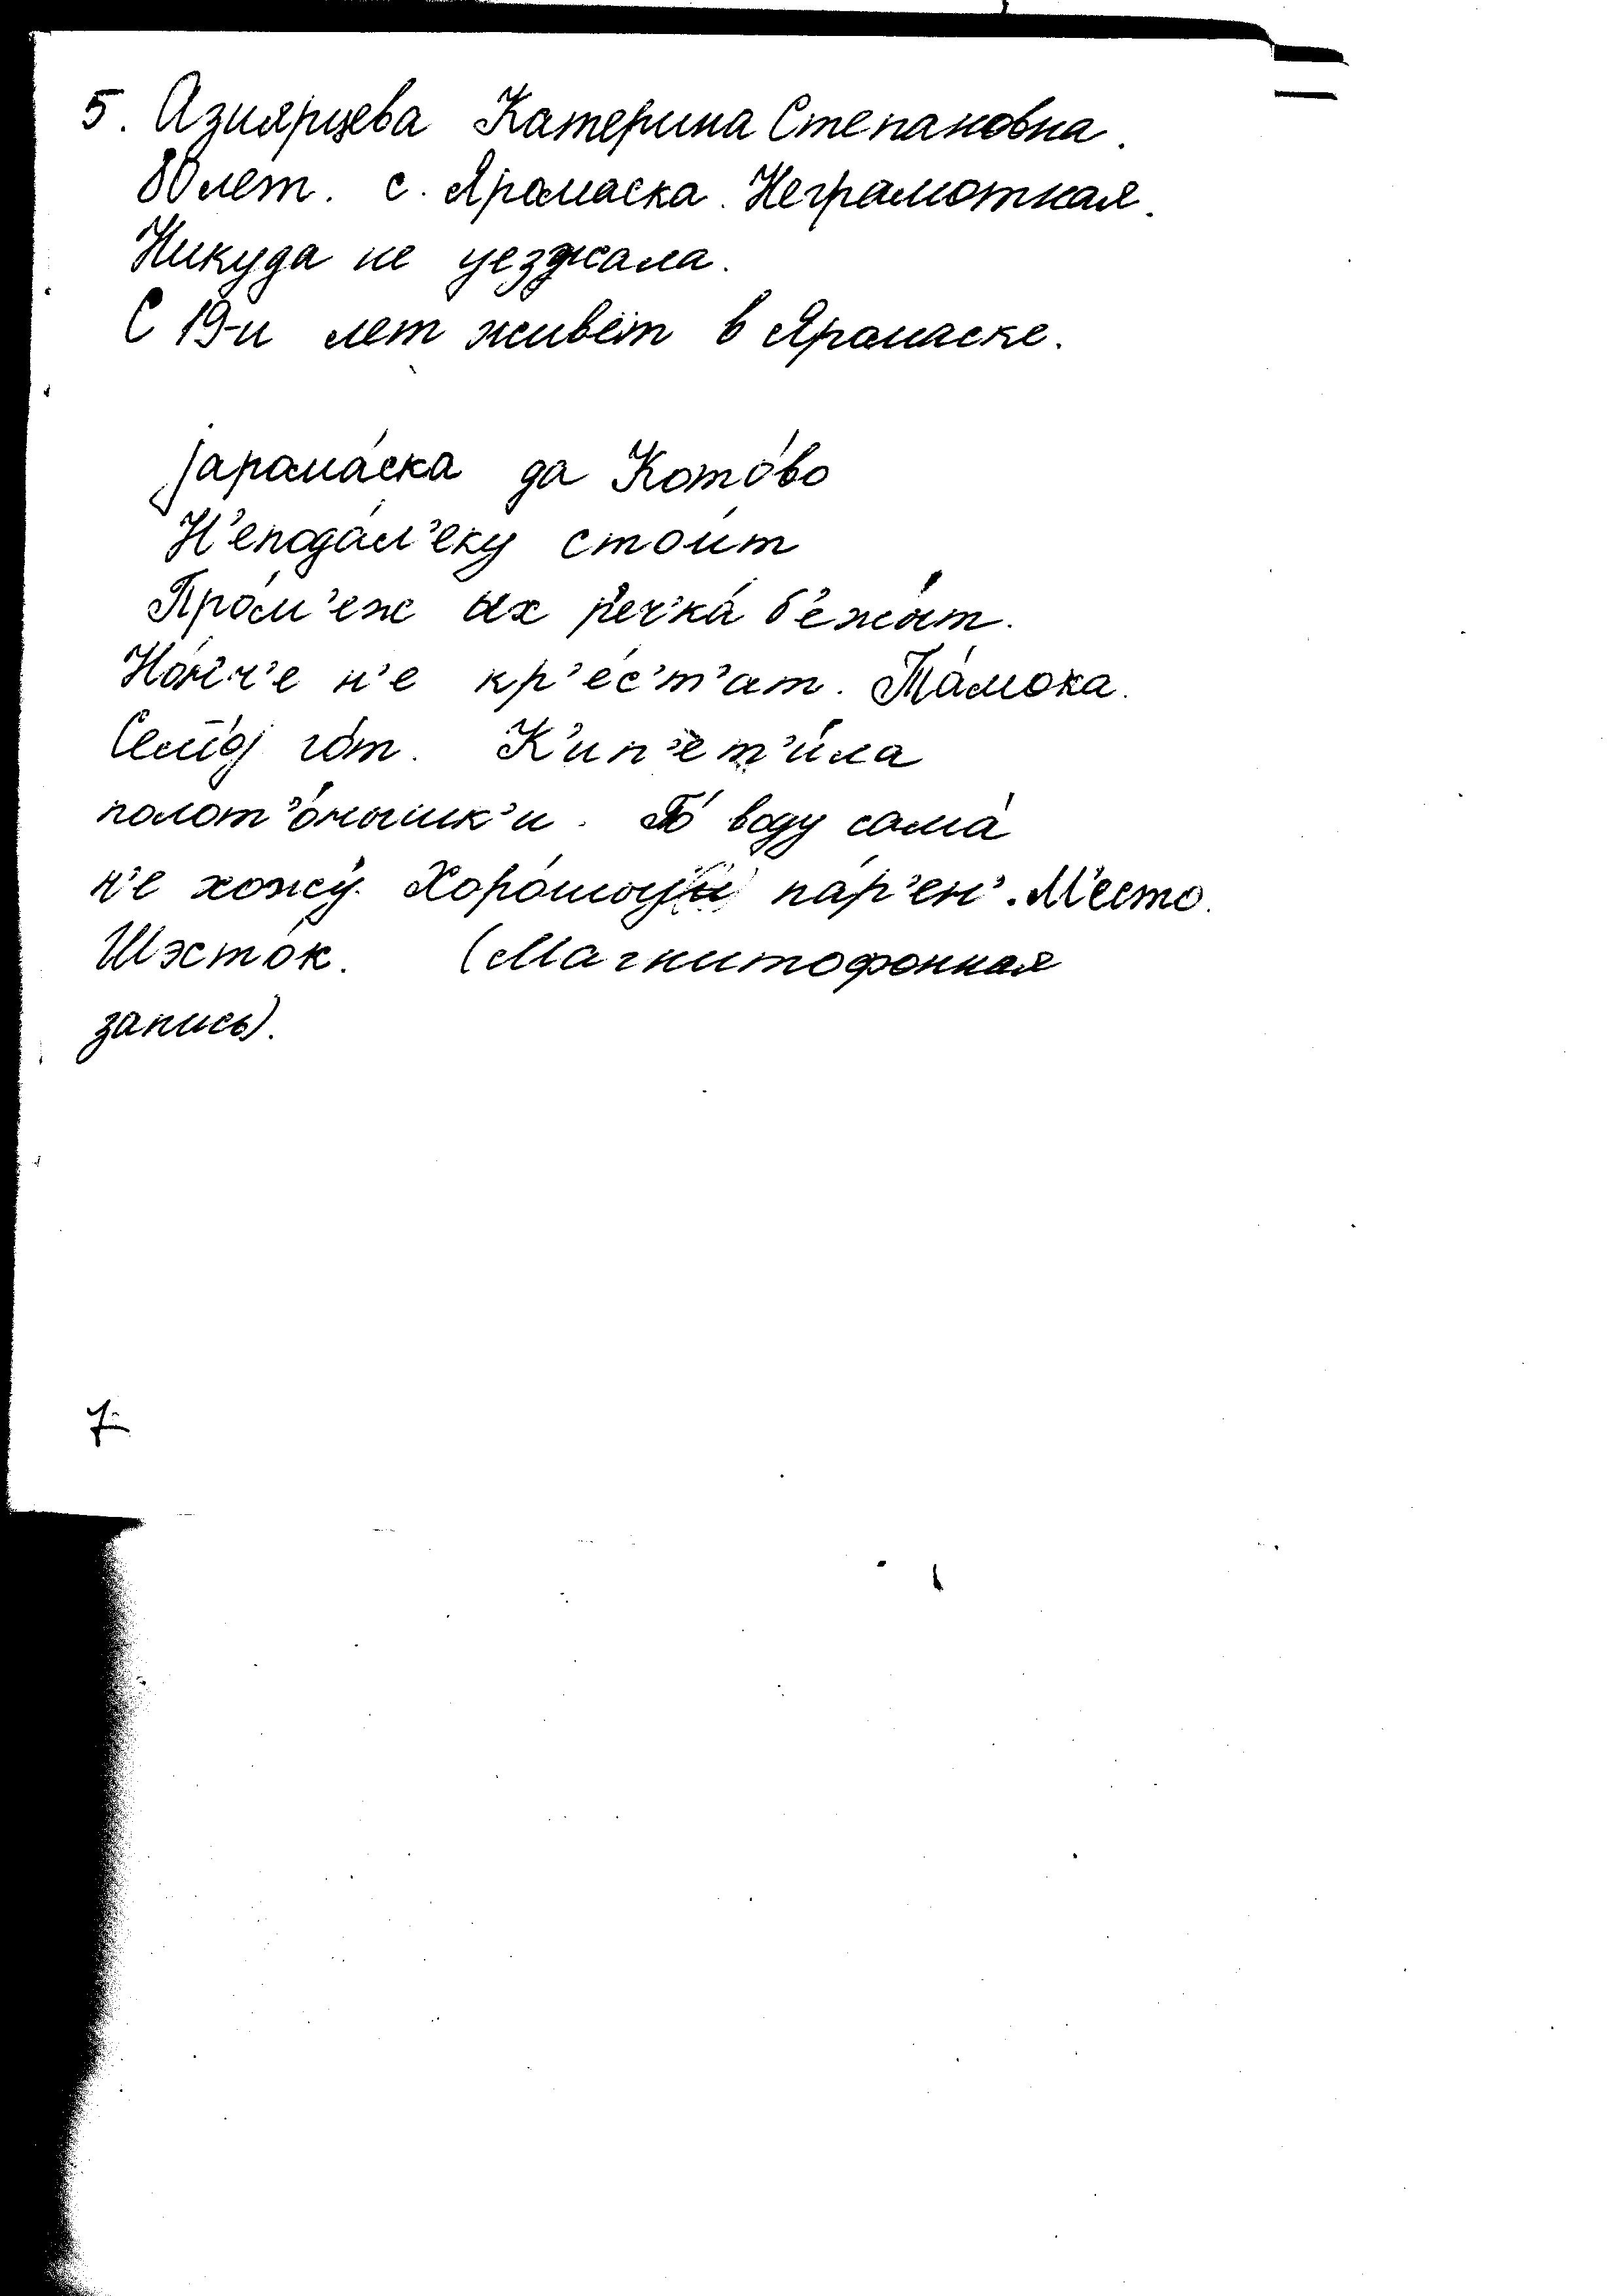 5. Азиярцева Катерина Степановна.
80 лет. с. Яромаска. Неграмотная.
Никуда не уезжала.
С 19-и лет живёт в Яромаске.
jарама́ска да Кото́во
Н'епода́л'еку стои́т
Про́м'еж ых р'еч'ка́ б'ежы́т.
Но́н'ч'е н'е кр'е́с'т'ат. Та́мока.
Семо́j го́т. К'ип'ет'и́ла
полот'о́нышк'и. По́ воду сама́
н'е хожу́. Хоро́шыj па́р'ен'. М'есто.
Шэсто́к. (Магнитофонная
запись).
7